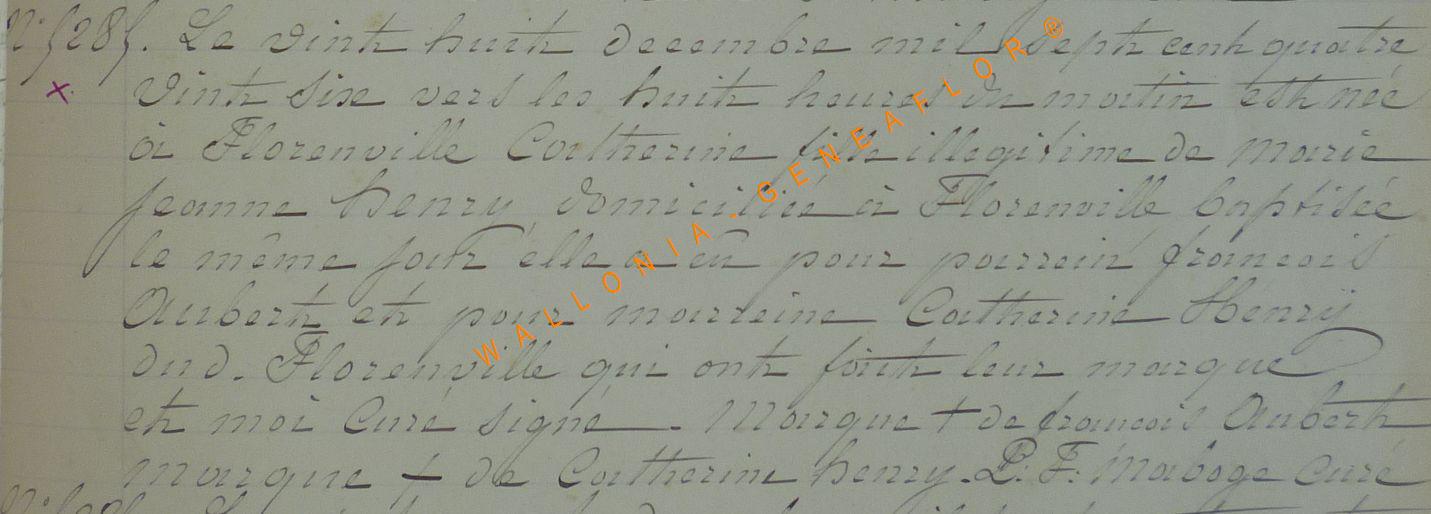 N° 5285. Le vint huit decembre mil sept cent quatre
vint six vers les huit heures du matin est née
à Florenville Catherine fille illegitime de marie
jeanne henry domiciliée à Florenville baptisée
le même jour elle a eu pour parrein francois
Aubert et pour marreine Catherine Henry
dud. Florenville qui ont fait leur marque
et moi Curé signé. Marque + de francois Aubert
marque + de Catherine henry. P. F. Maboge Curé
WALLONIA - GENEAFLOR ®